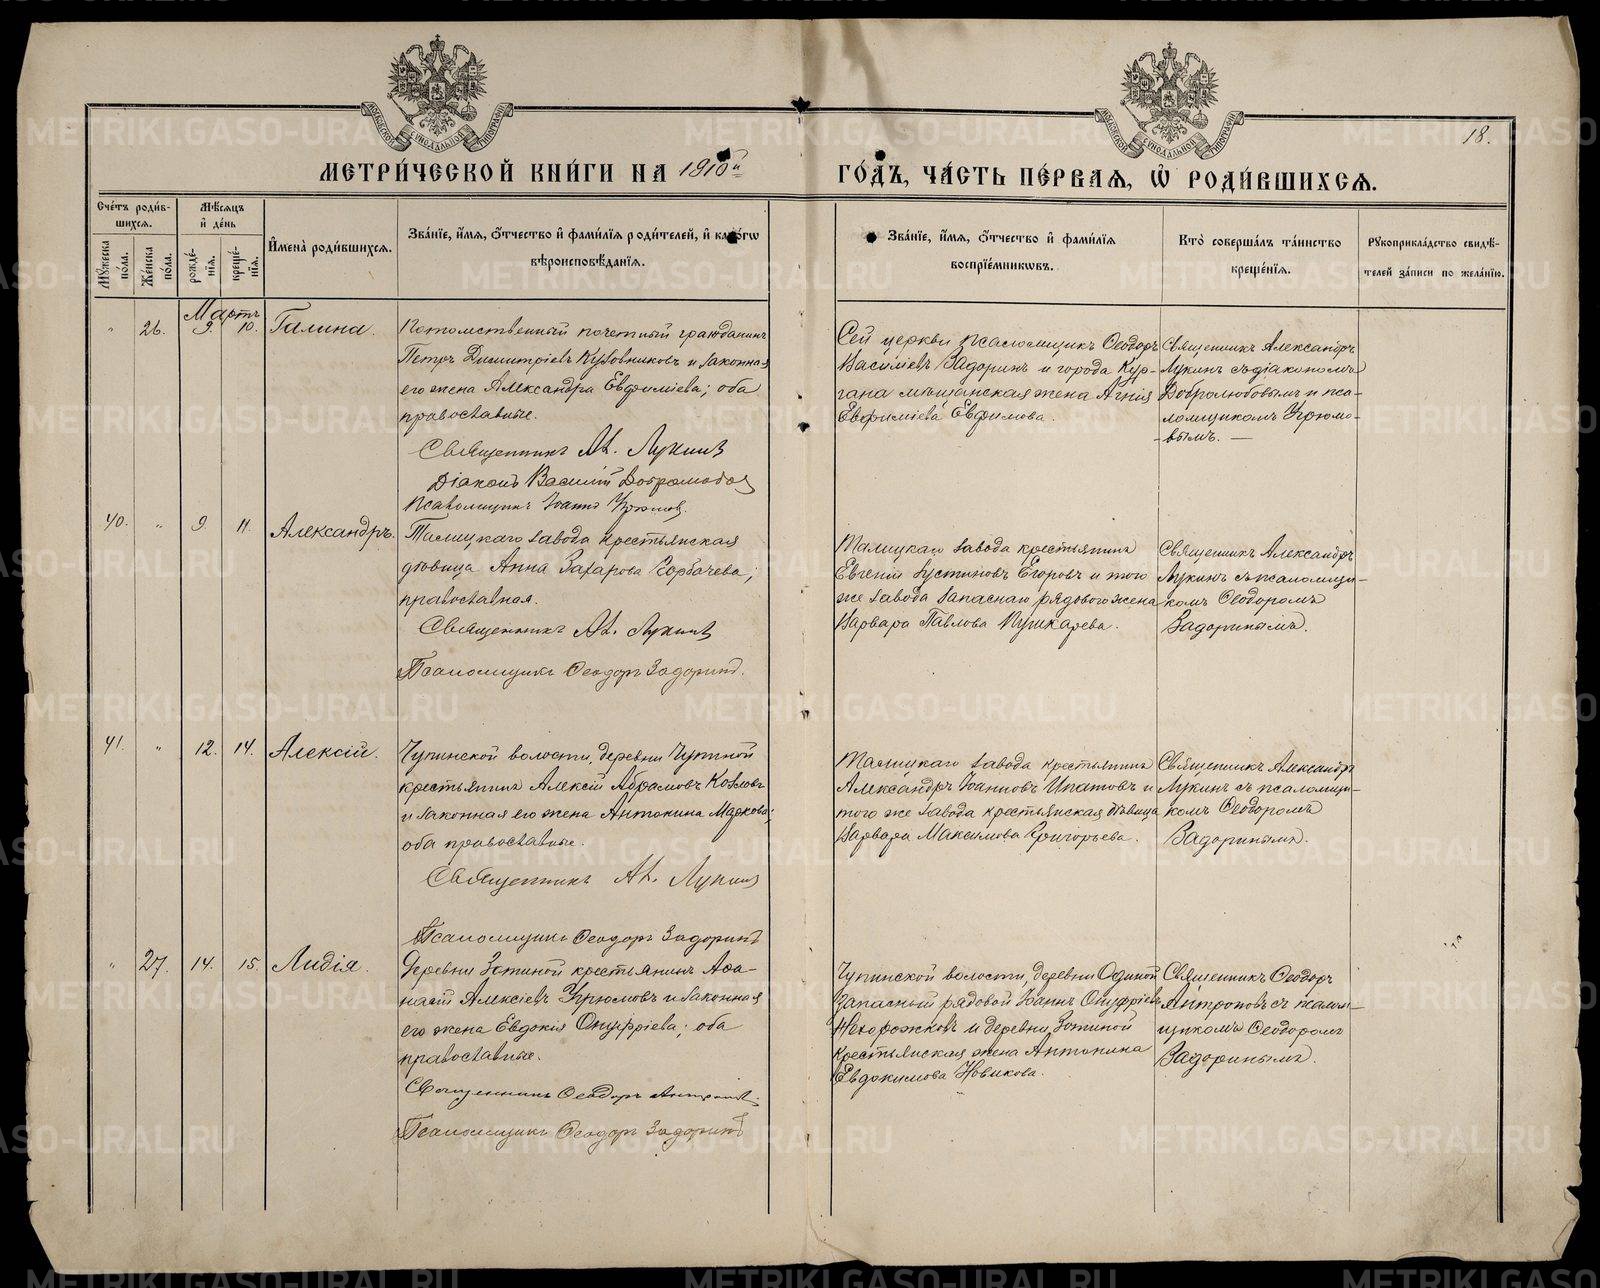 18.
МЕТРИ́ЧЕСКОЙ КНИ́ГИ НА 1910й ГО́ДЪ, ЧА́СТЬ ПЕ́РВАѦ, Ѽ РОДИ́ВШИХСѦ.
Сче́тъ роди́в-
шихсѧ.
Мꙋ́жеска по́ла.
Же́нска по́ла.
Мѣ́сѧцъ
и҆ де́нь
рожде́-
нїѧ.
креще́-
нїѧ.
И҆мена̀ роди́вшихсѧ.
Зва́нїе, и҆́мѧ, ѻ҆́тчество и҆ фами́лїѧ роди́телей, и҆ како́гѡ
вѣроисповѣ́данїѧ.
Зва́нїе, и҆́мѧ, ѻ҆́тчество и҆ фами́лїѧ
воспрїе́мникѡвъ.
Кто̀ соверша́лъ та́инство
креще́нїѧ.
Рꙋкоприкла́дство свидѣ́-
телей за́писи по жела́нїю.
Мартъ
" 26. 9. 10. Галина.
Потомственный почетный гражданинъ
Петръ Димитріевъ Кузовниковъ и законная
его жена Александра Евфиміева; оба
православные.
Священникъ Ал. Лукинъ
Діаконъ Василій Добролюбов
Псаломщикъ Іоаннъ Угрюмов.
Сей церкви псаломщикъ Ѳеодоръ
Василіевъ Задоринъ и города Кур-
гана мѣщанская жена Агнія
Евфиміева Евфимова.
Священникъ Александръ
Лукинъ съ діакономъ
Добролюбовымъ и пса-
ломщикомъ Угрюмо-
вымъ. —
40. " 9. 11. Александръ.
Талицкаго завода крестьянская
дѣвица Анна Захарова Горбачева;
православная.
Священникъ Ал. Лукинъ
Псаломщикъ Ѳеодоръ Задоринъ.
Талицкаго завода крестьянинъ
Евгеній Іустиновъ Егоровъ и того
же завода запаснаго рядового жена
Варвара Павлова Пушкарева.
Священникъ Александръ
Лукинъ съ псаломщи-
комъ Ѳеодоромъ
Задоринымъ.
41. " 12. 14. Алексій.
Чупинской волости, деревни Чупиной
крестьянинъ Алексій Абрамовъ Козловъ
и законная его жена Антонина Маркова;
оба православные.
Священникъ Ал. Лукинъ
Псаломщикъ Ѳеодоръ Задоринъ
Талицкаго завода крестьянинъ
Александръ Іоанновъ Ипатовъ и
того же завода крестьянская дѣвица
Варвара Максимова Григорьева.
Священникъ Александръ
Лукинъ съ псаломщи-
комъ Ѳеодоромъ
Задоринымъ.
" 27. 14. 15. Лидія.
Деревни Зотиной крестьянинъ Аѳа-
насій Алексіевъ Угрюмовъ и законная
его жена Евдокія Онуфріева; оба
православные.
Священникъ Ѳеодоръ Антроповъ
Псаломщикъ Ѳеодоръ Задоринъ
Чупинской волости, деревни
запасный рядовой Іоаннъ Онуфріевъ
и деревни Зотиной
крестьянская жена Антонина
Евдокимова Новикова.
Священникъ Ѳеодоръ
Антроповъ съ псалом-
щикомъ Ѳеодоромъ
Задоринымъ.